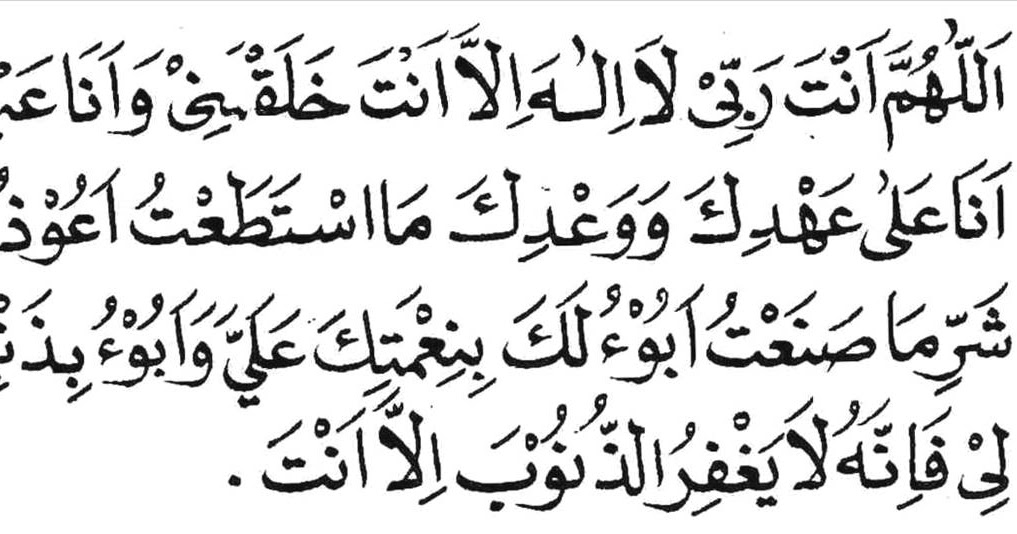 اَللّٰهُمَّ اَنْتَ رَبِّيْ لَا اِلٰهَ اِلَّا اَنْتَ خَلَقْتَنِيْ وَاَنَا
اَنَا عَلٰى عَهْدِكَ وَوَعْدِكَ مَا اسْتَطَعْتُ
شَرِّ مَا صَنَعْتُ اَبُوْءُ لَكَ بِنِعْمَتِكَ عَلَيَّ وَاَبُوْءُ
لِيْ فَاِنَّهُ لَا يَغْفِرُ الذُّنُوْبَ اِلَّا اَنْتَ .